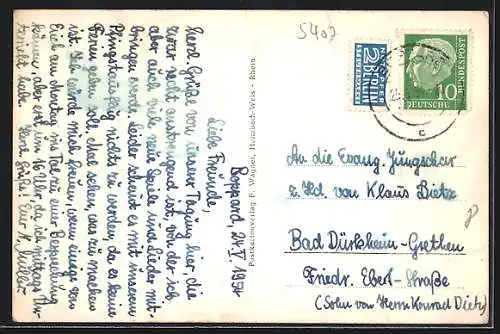 5407
Boppard, 24. V. 1954
Liebe Freunde,
herzl. Grüße von unserer Tagung hier, die
zwar recht anstrengend ist, von der ich
aber auch viel neue Spiele und Lieder mit-
bringen werde. Leider scheint es mit unserem
Pfingstausflug nichts zu werden, da es keine
Ferien geben soll. Mal sehen, was zu machen
ist. Ich würde mich freuen, wenn einige von
Euch am Montag ins Tal zu einer Besprechung
kämen, aber erst um 16 Uhr, da ich mittags
habe. Herzl. Grüße! Euer
Postkartenverlag F. Wagner, Rheinbach-Weis - Rhein.
NOTOPFER
2 BERLIN
STEUERMARKE
DEUTSCHE
BUNDESPOST
10
c
An die Evang. Jungschar
z. Hd. von Klaus Dietz
Bad Dürkheim-Grethen
Friedr. Ebert-Straße
(Sohn von Herrn Konrad Dietz)